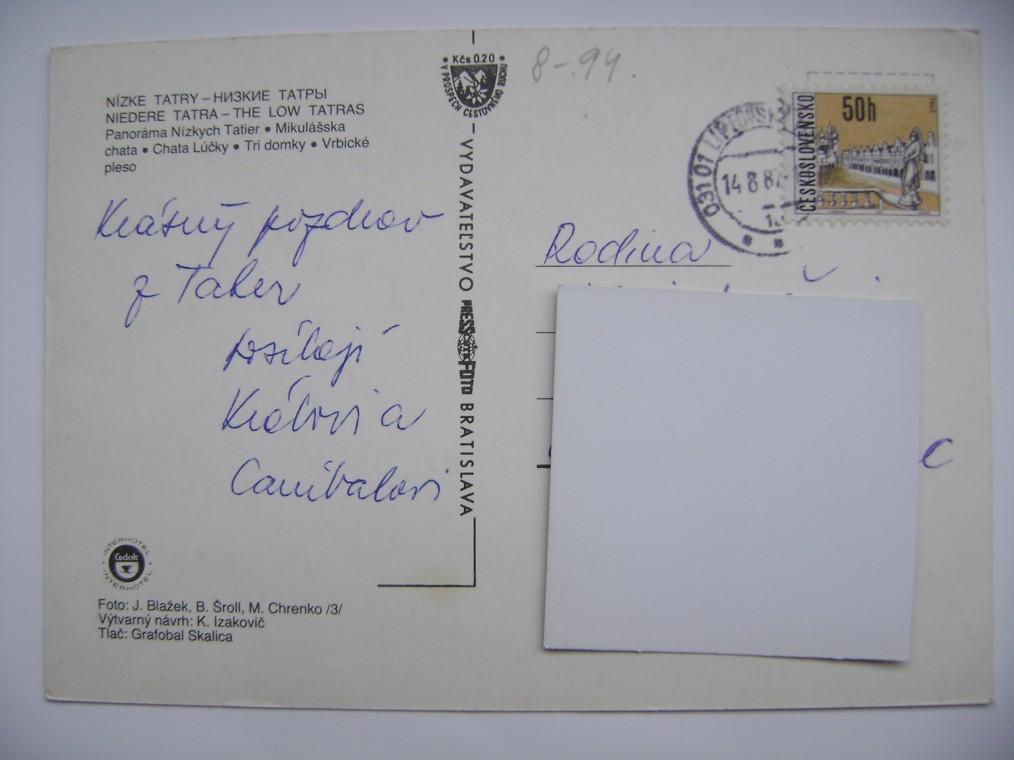 Kčs 0.20
V PROSPECH CESTOVNÉHO RUCHU
8-94.
NÍZKE TATRY – НИЗКИЕ ТАТРЫ
NIEDERE TATRA – THE LOW TATRAS
Panoráma Nízkych Tatier • Mikulášska
chata • Chata Lúčky • Tri domky • Vrbické
pleso
Krásný pozdrav
z Tater
posílají
Královi a
Canibalovi
INTERHOTEL
Čedok
INTERHOTEL
Foto: J. Blažek, B. Šroll, M. Chrenko /3/
Výtvarný návrh: K. Izakovič
Tlač: Grafobal Skalica
VYDAVATEĽSTVO PRESSFOTO BRATISLAVA
031 01 LIPTOVSKÝ
14 8 8
50h
ČESKOSLOVENSKO
Rodina